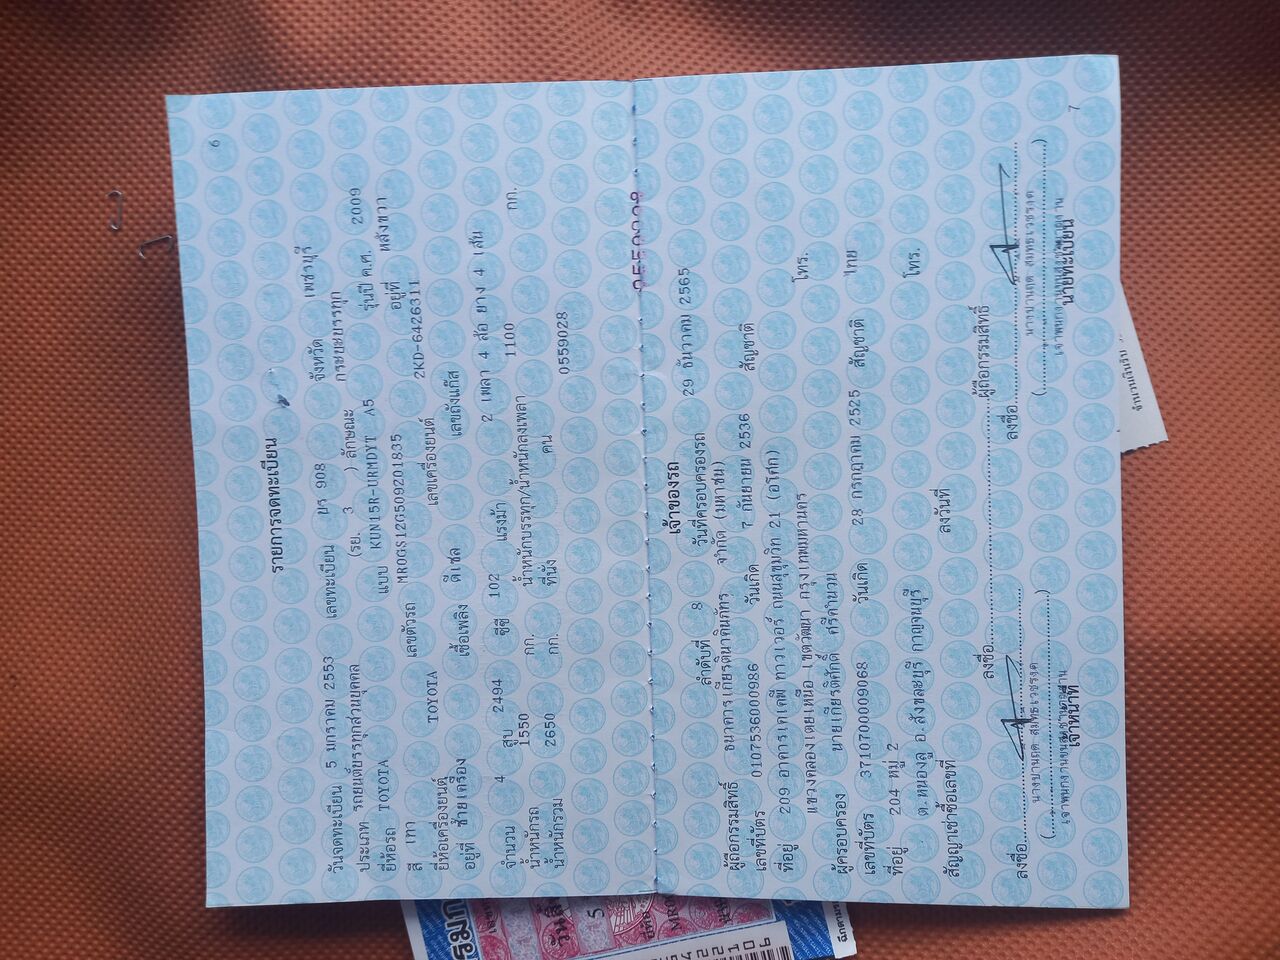 6
รายการจดทะเบียน
วันจดทะเบียน 5 มกราคม 2553 เลขทะเบียน 908 จังหวัด เพชรบุรี
ประเภท รถยนต์บรรทุกส่วนบุคคล (รย. 3 ) ลักษณะ กระบะบรรทุก
ยี่ห้อรถ TOYOTA แบบ KUN15R-URMDYT A5 รุ่นปี ค.ศ. 2009
สี เทา เลขตัวรถ MROGS12G509201835 อยู่ที่ หลังขวา
ยี่ห้อเครื่องยนต์ TOYOTA เลขเครื่องยนต์ 2KD-6426311
อยู่ที่ ซ้ายเครื่อง เชื้อเพลิง ดีเซล เลขถังแก๊ส
จำนวน 4 สูบ 2494 ซีซี 102 แรงม้า 2 เพลา 4 ล้อ ยาง 4 เส้น
น้ำหนักรถ 1550 กก. น้ำหนักบรรทุก/น้ำหนักลงเพลา 1100 กก.
น้ำหนักรวม 2650 กก. ที่นั่ง คน
0559028
เจ้าของรถ
ลำดับที่ 8 วันที่ครอบครองรถ 29 ธันวาคม 2565
ผู้ถือกรรมสิทธิ์ ธนาคารเกียรตินาคินภัทร จำกัด (มหาชน)
เลขที่บัตร 0107536000986 วันเกิด 7 กันยายน 2536 สัญชาติ
ที่อยู่ 209 อาคารเคเคพี ทาวเวอร์ ถนนสุขุมวิท 21 (อโศก)
แขวงคลองเตยเหนือ เขตวัฒนา กรุงเทพมหานคร โทร.
ผู้ครอบครอง นายเกียรติศักดิ์ ศรีคำนวน
เลขที่บัตร 3710700009068 วันเกิด 28 กรกฎาคม 2525 สัญชาติ ไทย
ที่อยู่ 204 หมู่ 2
ต.หนองลู อ.สังขละบุรี กาญจนบุรี โทร.
สัญญาเช่าซื้อเลขที่ ลงวันที่
ลงชื่อ ผู้ถือกรรมสิทธิ์
ลงชื่อ ลงชื่อ
เจ้าหน้าที่ นายทะเบียน
7
จำนวนเงินรับ